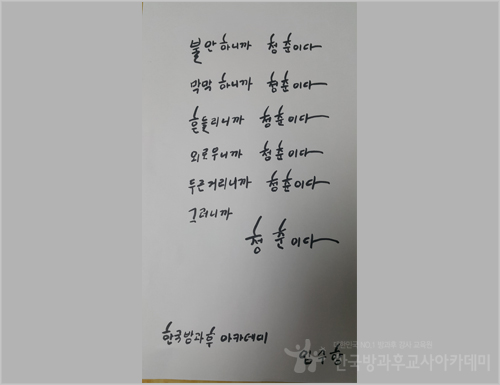 불안하니까 청춘이다
막막하니까 청춘이다
흔들리니까 청춘이다
외로우니까 청춘이다
두근거리니까 청춘이다
그러니까
청춘이다
한국방과후 아카데미
한국방과후교사아카데미